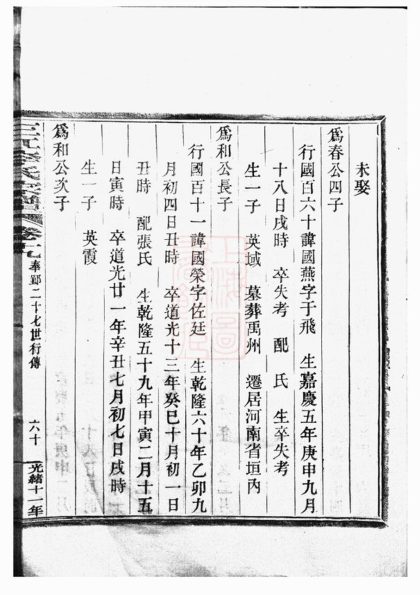 未娶
為春公四子
行國百六十諱國燕字于飛　生嘉慶五年庚申九月
十八日戌時　卒失考　配　氏　生卒失考
生一子　英域　墓葬禹州　遷居河南省垣內
為和公長子
行國百十一諱國榮字佐廷　生乾隆六十年乙卯九
月初四日丑時　卒道光十三年癸巳十月初一日
丑時　配張氏　生乾隆五十九年甲寅二月十五
日寅時　卒道光廿一年辛丑七月初七日戌時
生一子　英霞
為和公次子
李氏宗譜　卷之九　奉郢二十七世行傳　六十　光緒十一年